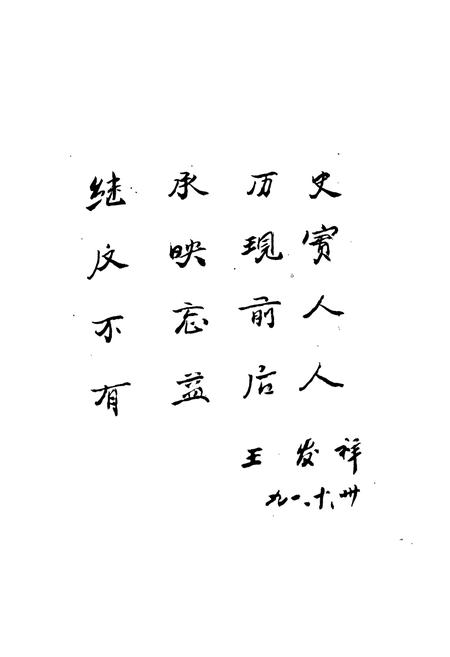 继承历史
反映現實
不忘前人
有益后人
王发祥
九一.十.卅